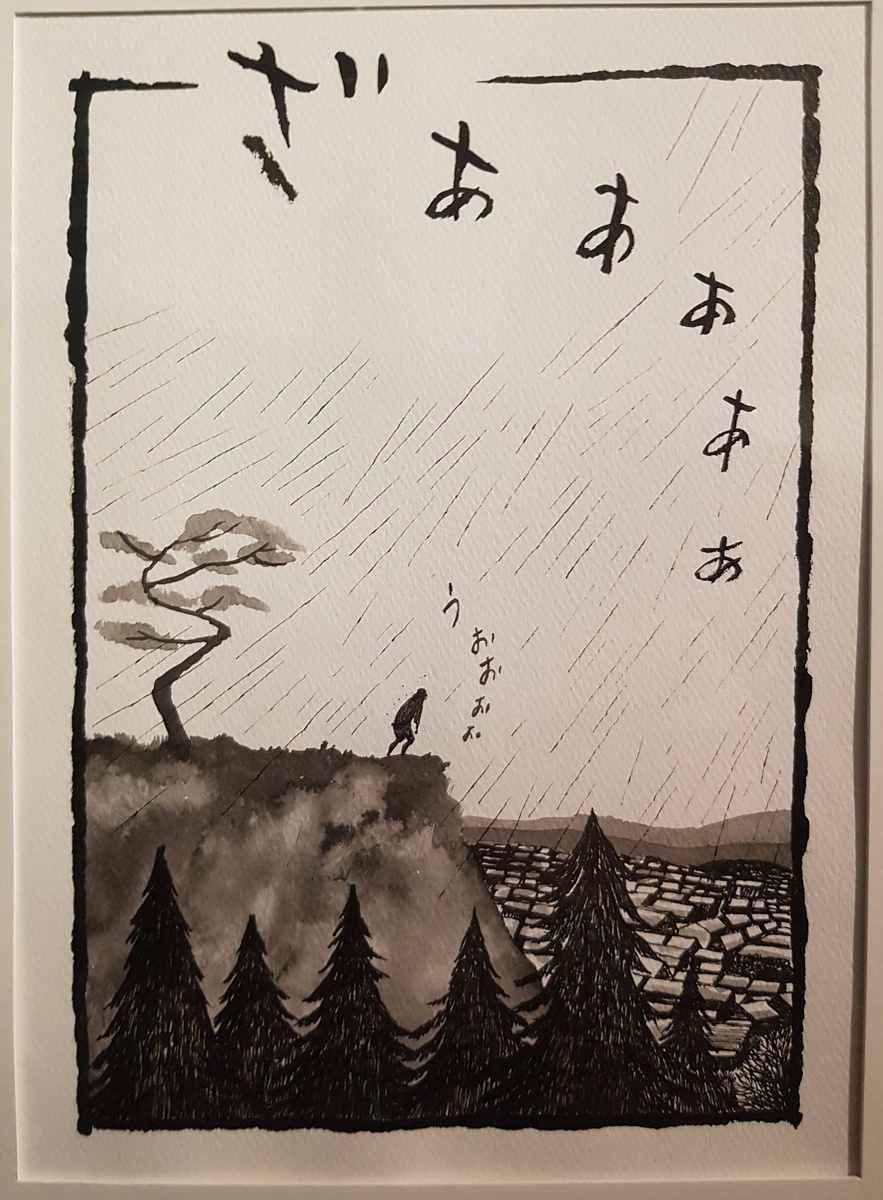 ざあああああ
うおおおお